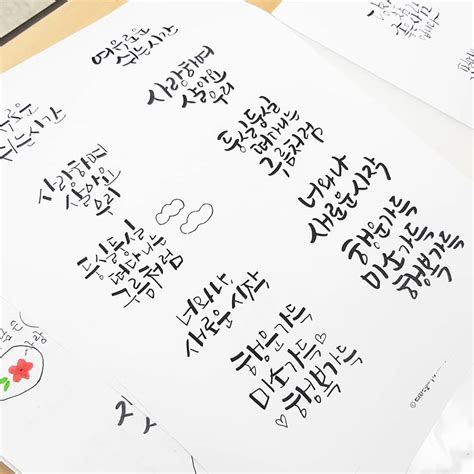 여유로운
쉬는시간
사랑하며
살아요
우리
둥실둥실
떠다니는
구름처럼
너와나
새로운시작
행운가득
미소가득
행복가득
는시간
사랑하며
살아요
우리
둥실둥실
떠다니는
구름처럼
너와나,
새로운시작
행운가득
미소가득
행복가득
사랑